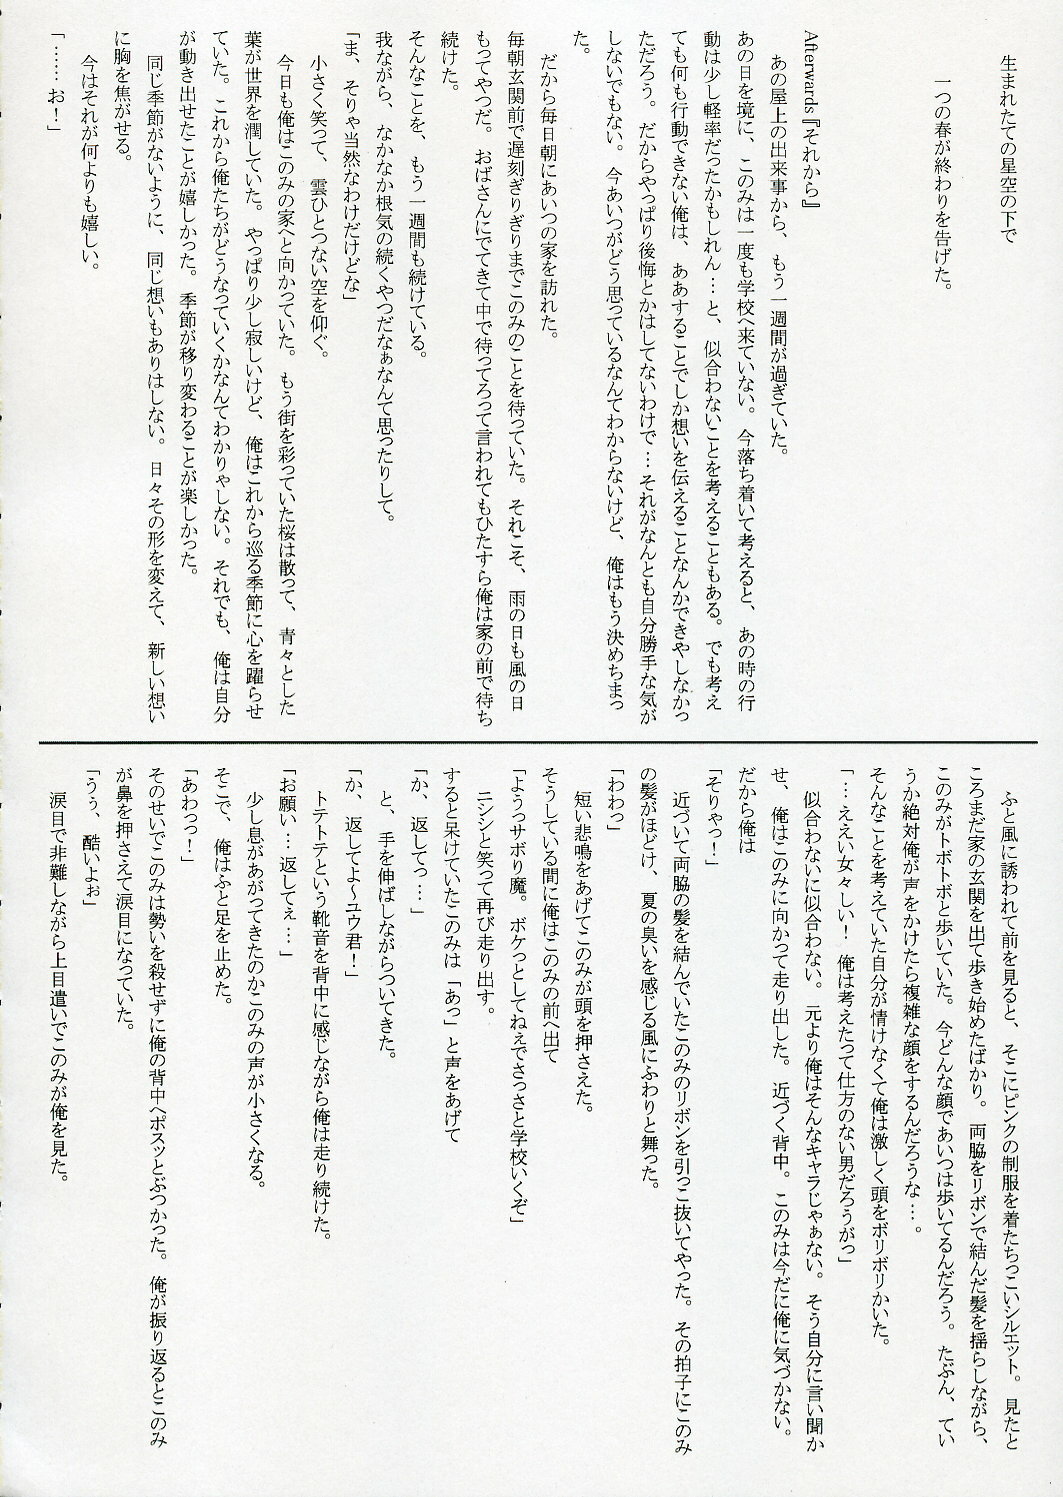 生まれたての星空の下で
一つの春が終わりを告げた。
Afterwards『それから』
あの屋上の出来事から、もう一週間が過ぎていた。
あの日を境に、このみは一度も学校へ来ていない。今落ち着いて考えると、あの時の行
動は少し軽率だったかもしれん…と、似合わないことを考えることもある。でも考え
ても何も行動できない俺は、ああすることでしか想いを伝えることなんかできやしなかっ
ただろう。だからやっぱり後悔とかはしてないわけで…それがなんとも自分勝手な気が
しないでもない。今あいつがどう思っているなんてわからないけど、俺はもう決めちまっ
た。
だから毎日朝にあいつの家を訪れた。
毎朝玄関前で遅刻ぎりぎりまでこのみのことを待っていた。それこそ、雨の日も風の日
もってやつだ。おばさんにでてきて中で待ってろって言われてもひたすら俺は家の前で待ち
続けた。
そんなことを、もう一週間も続けている。
我ながら、なかなか根気の続くやつだなぁなんて思ったりして。
「ま、そりゃ当然なわけだけどな」
小さく笑って、雲ひとつない空を仰ぐ。
今日も俺はこのみの家へと向かっていた。もう街を彩っていた桜は散って、青々とした
葉が世界を潤していた。やっぱり少し寂しいけど、俺はこれから巡る季節に心を躍らせ
ていた。これから俺たちがどうなっていくかなんてわかりゃしない。それでも、俺は自分
が動き出せたことが嬉しかった。季節が移り変わることが楽しかった。
同じ季節がないように、同じ想いもありはしない。日々その形を変えて、新しい想い
に胸を焦がせる。
今はそれが何よりも嬉しい。
「……お！」
ふと風に誘われて前を見ると、そこにピンクの制服を着たちっこいシルエット。見たと
ころまだ家の玄関を出て歩き始めたばかり。両脇をリボンで結んだ髪を揺らしながら、
このみがトボトボと歩いていた。今どんな顔であいつは歩いてるんだろう。たぶん、てい
うか絶対俺が声をかけたら複雑な顔をするんだろうな…。
そんなことを考えていた自分が情けなくて俺は激しく頭をボリボリかいた。
「…ええい女々しい！俺は考えたって仕方のない男だろうがっ」
似合わないに似合わない。元より俺はそんなキャラじゃぁない。そう自分に言い聞か
せ、俺はこのみに向かって走り出した。近づく背中。このみは今だに俺に気づかない。
だから俺は
「そりゃっ！」
近づいて両脇の髪を結んでいたこのみのリボンを引っこ抜いてやった。その拍子にこのみ
の髪がほどけ、夏の臭いを感じる風にふわりと舞った。
「わわっ」
短い悲鳴をあげてこのみが頭を押さえた。
そうしている間に俺はこのみの前へ出て
「ようっサボり魔。ボケっとしてねぇでさっさと学校いくぞ」
ニシシと笑って再び走り出す。
すると呆けていたこのみは「あっ」と声をあげて
「か、返してっ…」
と、手を伸ばしながらついてきた。
「か、返してよ～ユウ君！」
トテトテという靴音を背中に感じながら俺は走り続けた。
「お願い…返してぇ…」
少し息があがってきたのかこのみの声が小さくなる。
そこで、俺はふと足を止めた。
「あわっっ！」
そのせいでこのみは勢いを殺せずに俺の背中へポスッとぶつかった。俺が振り返るとこのみ
が鼻を押さえて涙目になっていた。
「うぅ、酷いよぉ」
涙目で非難しながら上目遣いでこのみが俺を見た。